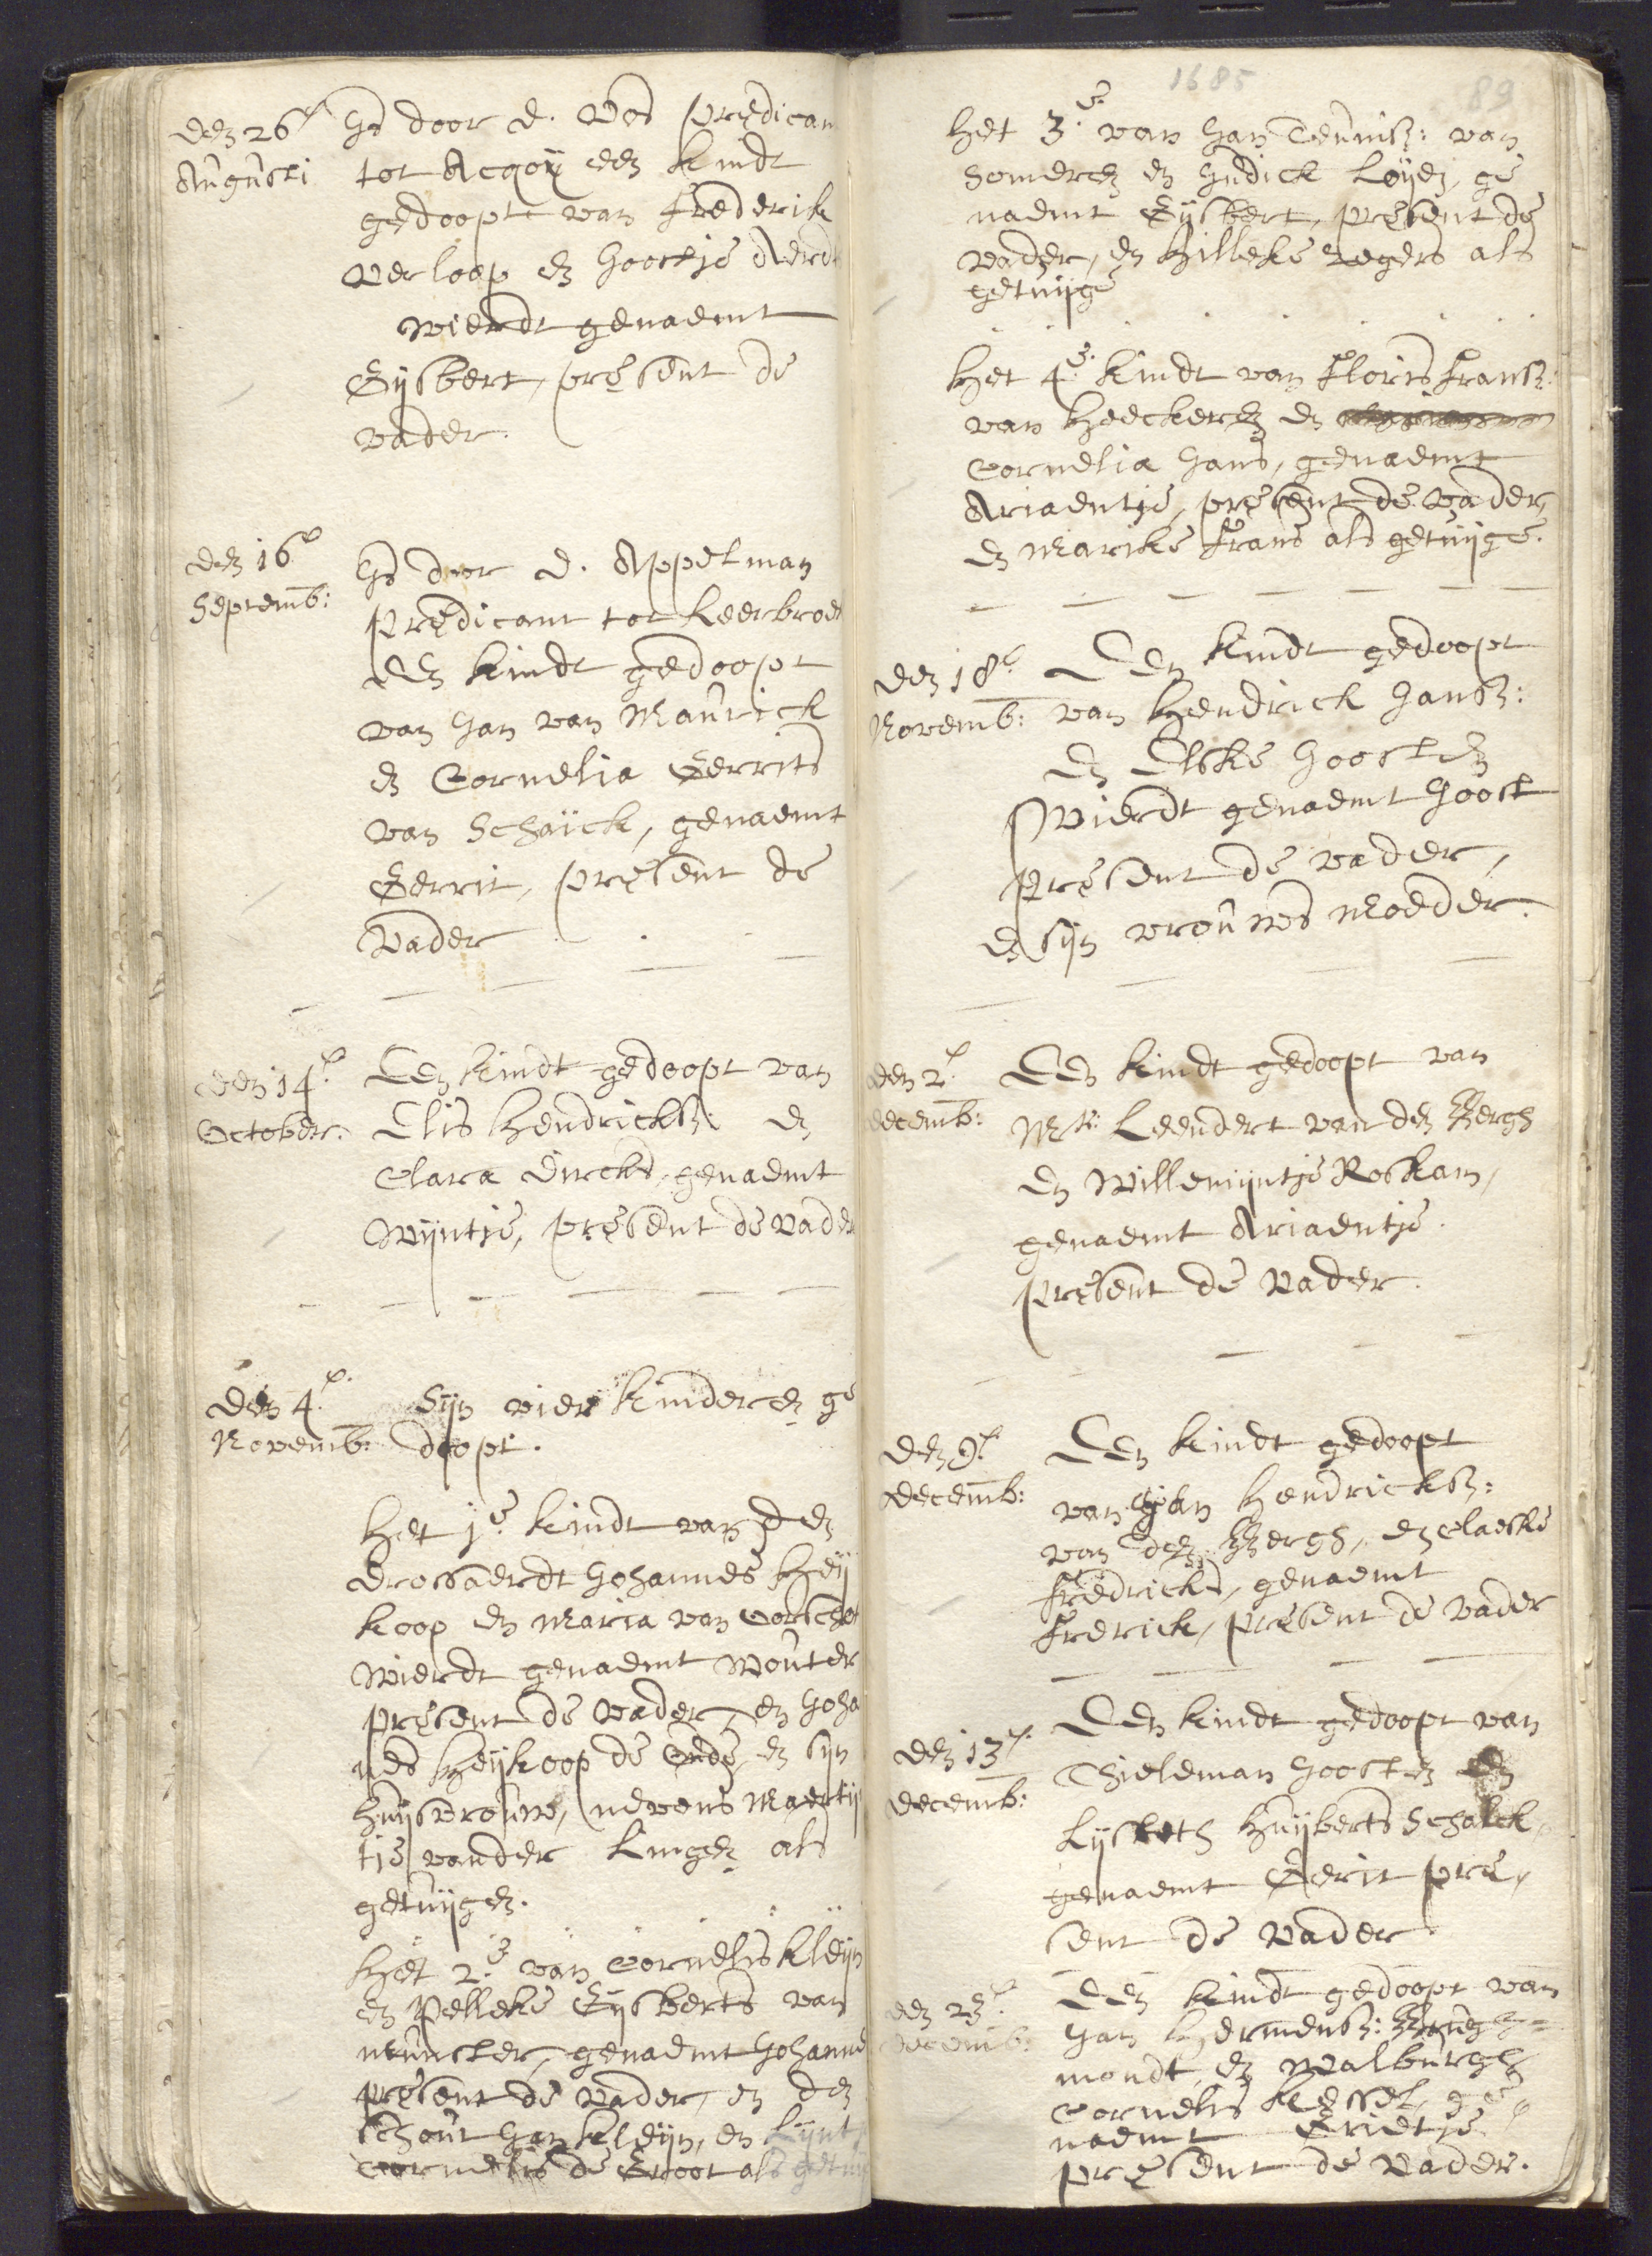 den 26e Is door D. Vos predican
Augusti tot Acqoy een kindt
gedoopt van Frederik
Verloop en Joostje Aerdt
wierdt genaemt
Gijsbert, present de
vader.
den 16e Is door D. Appelman
Septemb: predicant tot Leerbroe
een kindt gedoopt
van Jan van Maurick
en Cornelia Gerrits
van Schaijck, genaemt
Gerrit, present de
Vader
den 14e Een kindt gedoopt van
October. Elis Hendricksz: en
Clara Dircks, genaemt
Wijntje, present de vader
den 4e. Sijn vier kinderen ge
Novemb: doopt.
Het 1e. kindt van den
drossaerdt Johannes Heij
koop en Maria van Oorschot
wierdt genaemt Wouter
present de vader, en Joha
nes Heijkoop de Oude, en sijn
huijsvrouw, nevens Maertij
tje vander Lingen als
getuijgen.
Het 2.e van Cornelis Kleijn
en Pelleke Gijsberts van
munster, genaemt Johanne
present de vader, en den
Schout Jan Kleijn, en Lijnt
Cornelis de Groot als getu
1685 89
Het 3.e van Jan Teunisz: van
Someren en Hudick Loijen, ge
naemt Gijsbert, present de
vader, en Hilleke Segers als
getuijge
Het 4.e kindt van Floris Fransz:
van Heeckeren en
Cornelia Jans, genaemt
Ariaentje, present de vader,
en Marike Frans als getuijge.
den 18e Een kindt gedoopt
Novemb: van Hendrick Jansz:
en Elske Joosten
wierdt genaemt Joost
present de vader,
en sijn vrouws moeder.
den 2e. Een kindt gedoopt van
decemb: Mr: Leendert van den Bergh
en Willemijntje Roskam,
genaemt Ariaentje.
present de vader.
den 9e Een kindt gedoopt
decemb: van Jan Hendricksz:
van den Bergh, en Claeske
Fredricks, genaemt
Fredrick, present de vader
den 13e. Een kindt gedoopt van
decemb: Thieleman Joosten en
Lijsbeth Huijberts Schalck,
genaemt Gerit pre,
sent de vader
den 23e. Een kindt gedoopt van
decemb: Jan Hermensz:
mondt, en Walburgh
Cornelis Kessel, ge
naemt Grietje
present de vader.